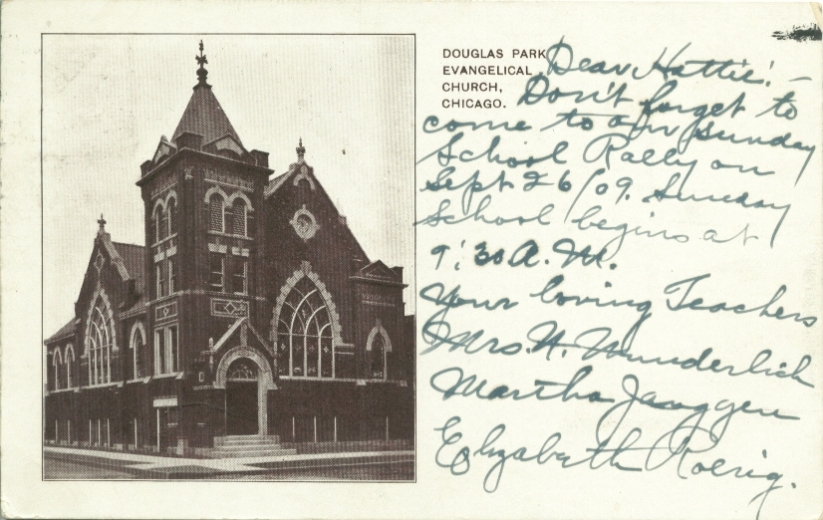 DOUGLAS PARK
EVANGELICAL
CHURCH,
CHICAGO.
Dear Hattie! —
Don't forget to
come to our Sunday
School Rally on
Sept 26/09. Sunday
School begins at
9:30 A.M.
Your loving Teachers
Mrs. H. Wunderlich
Martha Jaeggen
Elizabeth Roerig.